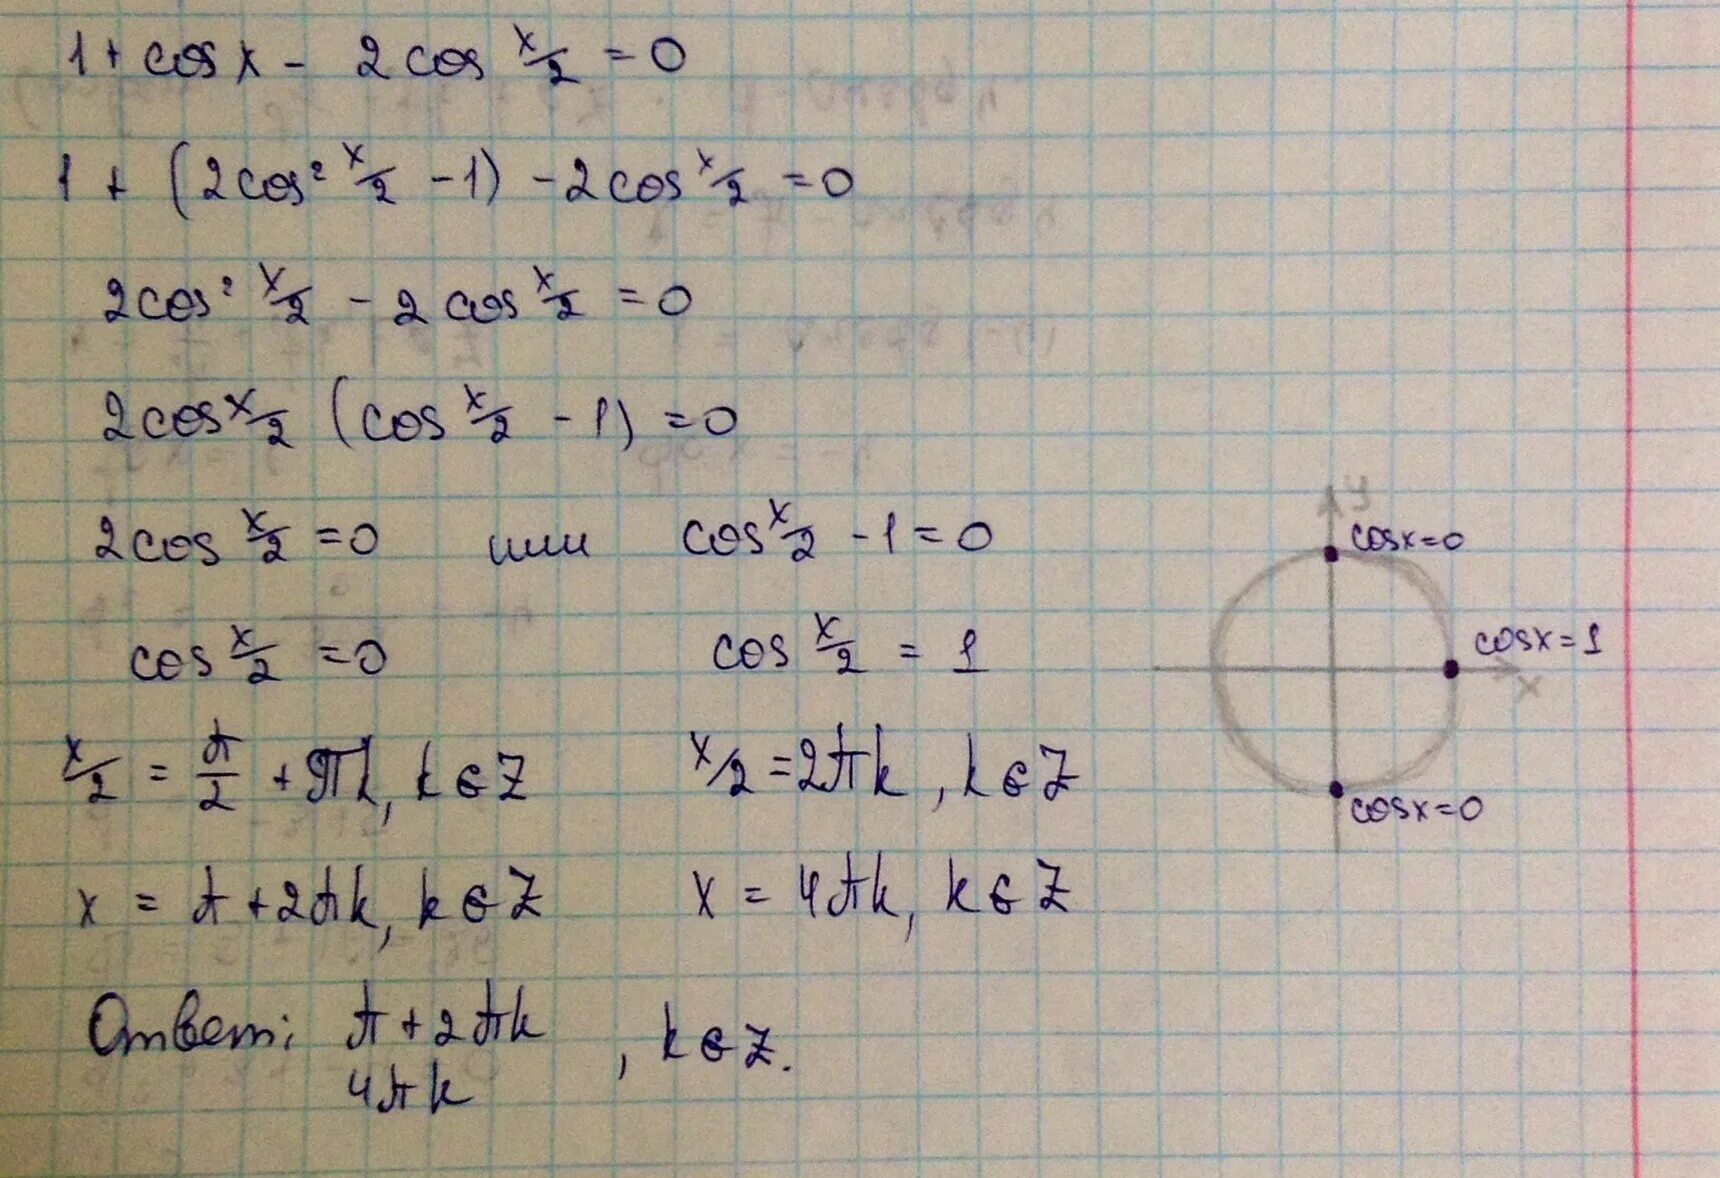 1 + cos x - 2 cos x/2 = 0
1 + (2cos² x/2 - 1) - 2cos x/2 = 0
2cos² x/2 - 2 cos x/2 = 0
2cos x/2 (cos x/2 - 1) = 0
2cos x/2 = 0 или cos x/2 - 1 = 0
cos x/2 = 0 cos x/2 = 1
x/2 = π/2 + πk, k ∈ Z x/2 = 2πk, k ∈ Z
x = π + 2πk, k ∈ Z x = 4πk, k ∈ Z
Ответ: π + 2πk
4πk , k ∈ Z.
y
cosx=0
cosx=1
x
cosx=0